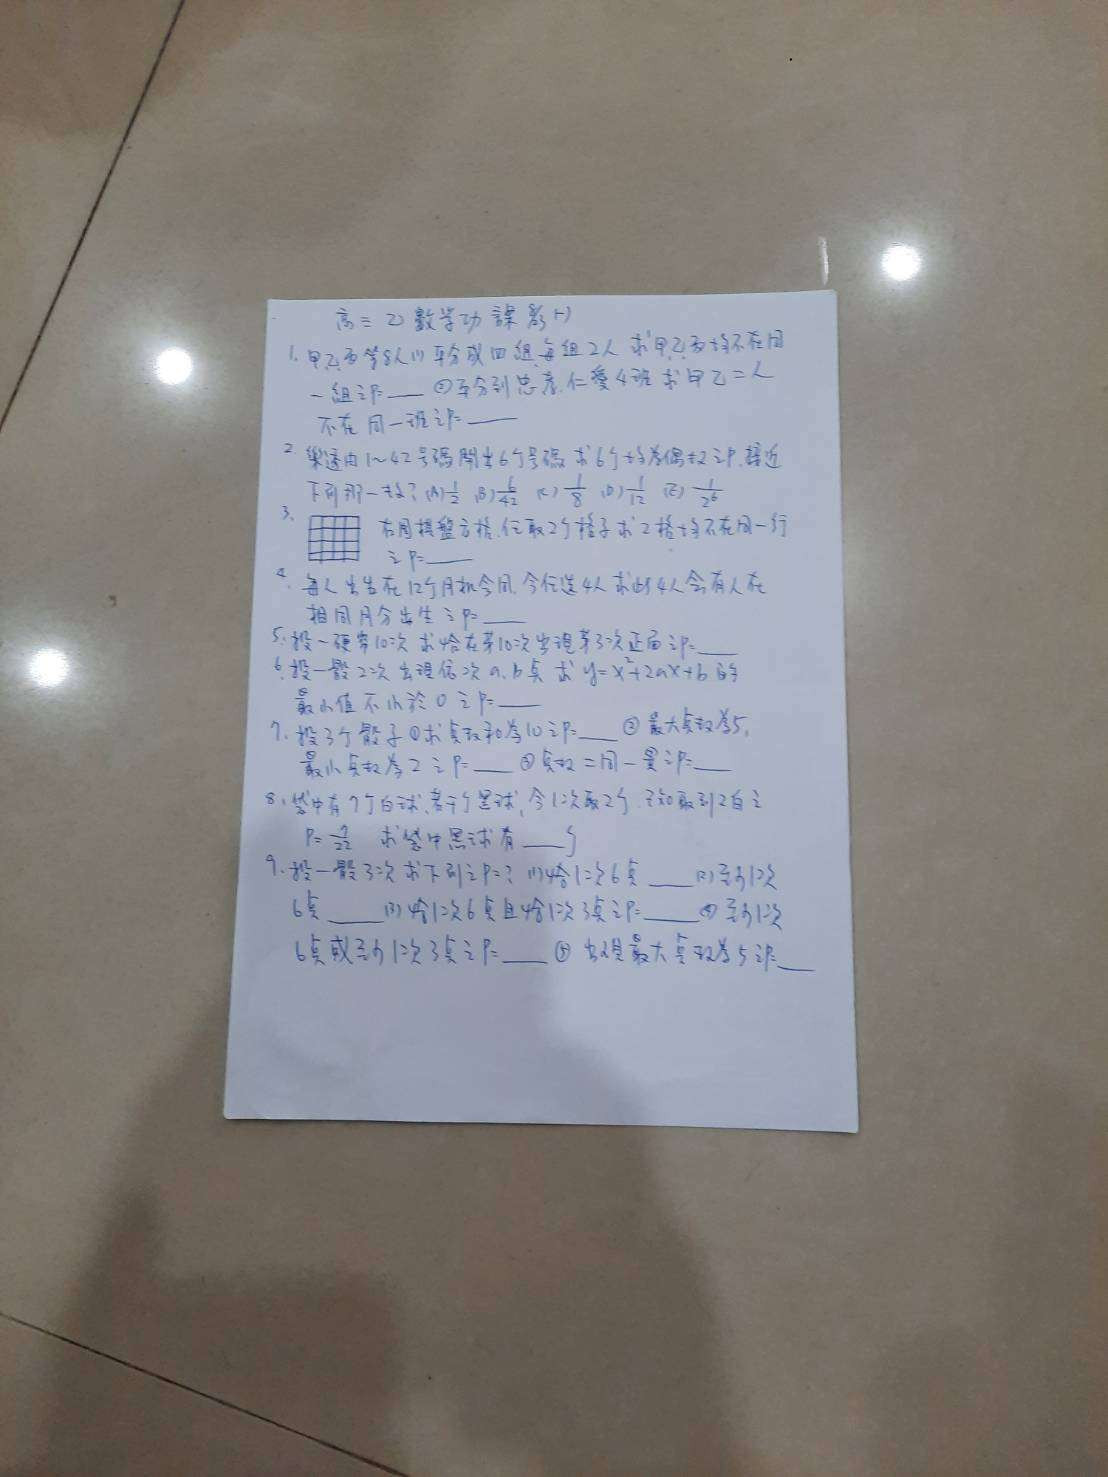 高二乙數學功課影(-)
1. 甲乙丙等8人(1)平分成四組,每組2人 求甲,乙,丙均不在同
一組之P=____ ②平分到忠.孝.仁愛4班 求甲乙二人
不在同一班之P=____
2. 樂透由1~42号碼開出6个号碼 求6个均為偶數之P.接近
下列那一數? (A) 1/2 (B) 6/42 (C) 1/8 (D) 1/12 (E) 1/2^6
3. 右图棋盤方格.任取2个格子求2格均不在同一行
之P=____
4. 每人出生在12个月机會同.今任选4人求此4人会有人在
相同月分出生之P=____
5. 投一硬幣10次 求恰在第10次出現第3次正面之P=____
6. 投一骰2次出現依次a.b点 求y=x²+2ax+b的
最小值不小於0之P=____
7. 投3个骰子①求点数和為10之P=____ ②最大点数為5,
最小点数為2之P=____ ③点数二同一異之P=____
8. 袋中有7个白球,若干个黑球,今1次取2个.已知取到2白之
P=7/22 求袋中黑球有____个
9. 投一骰3次求下列之P=? (1)恰1次6点____(2)至少1次
6点____(3)恰1次6点且恰1次3点之P=____④至少1次
6点或至少1次3点之P=____⑤出現最大点数為5之P=__